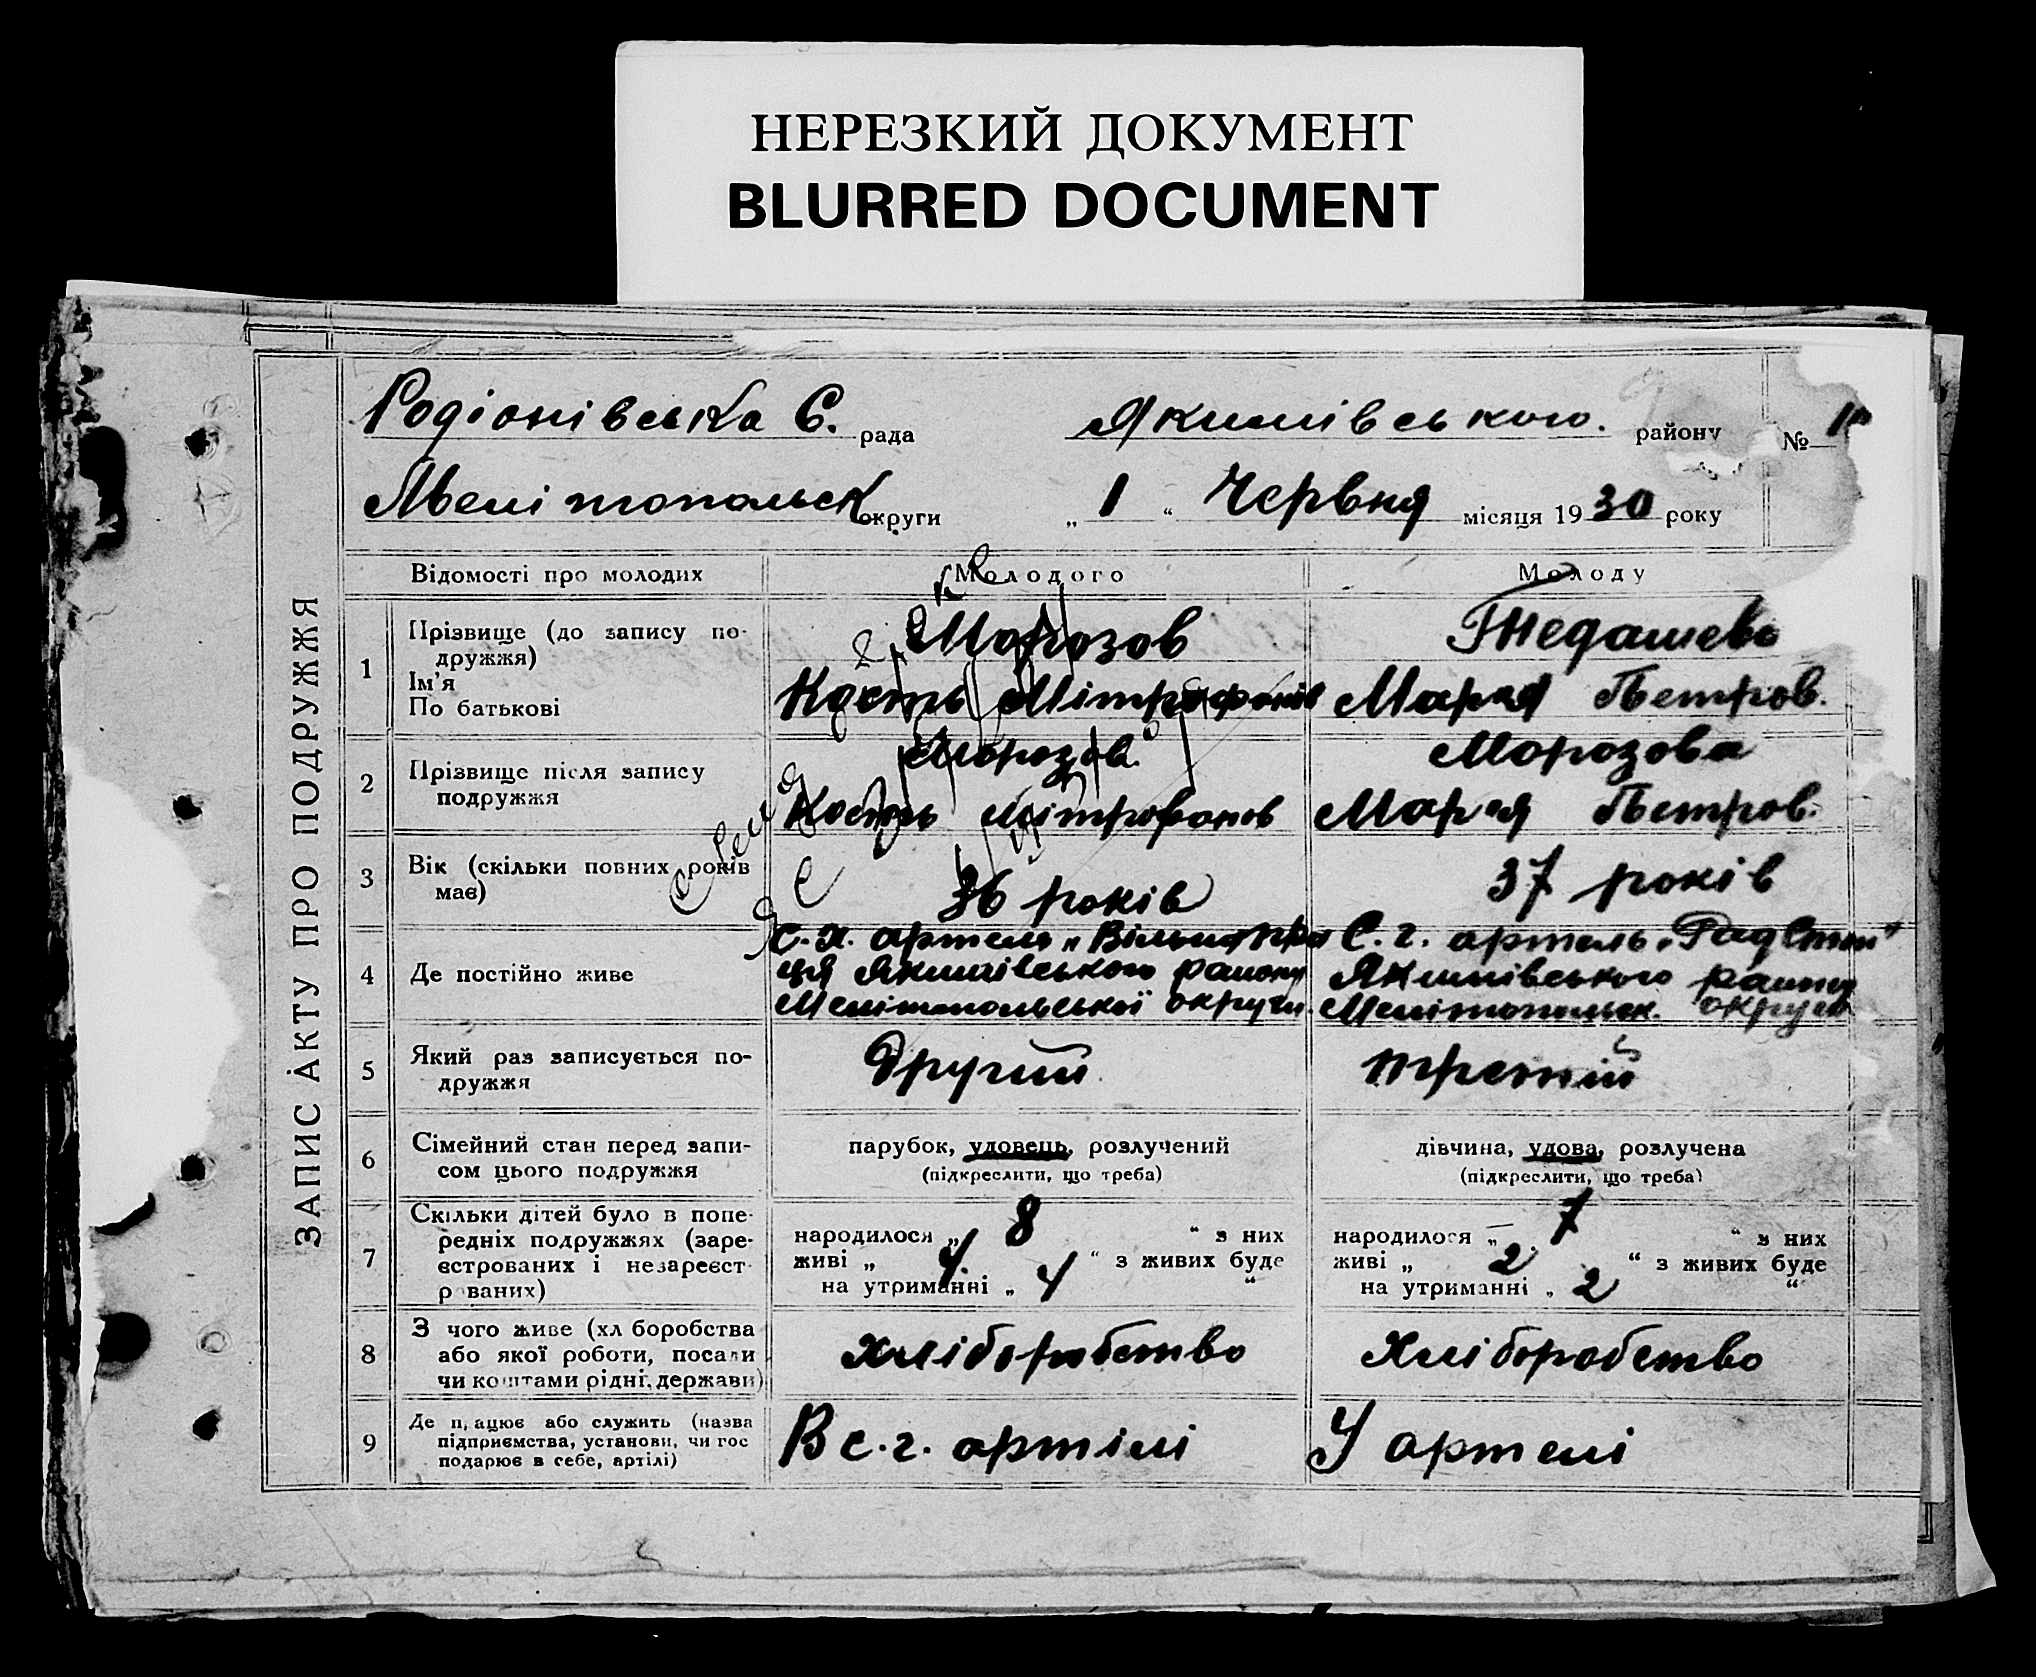 НЕРЕЗКИЙ ДОКУМЕНТ
BLURRED DOCUMENT
ЗАПИС АКТУ ПРО ПОДРУЖЖЯ
Родіонівська С. рада Якимівського. району №
Мелітопольськ округи „ 1 “ Червня місяця 1930 року
Відомості про молодих Молодого Молоду
1 Прізвище (до запису по-
дружжя)
Ім'я
По батькові
Морозов
Кость Мітрофанів
Марія Петров.
2 Прізвище після запису
подружжя
Морозов
Кость Мітрофанов
Морозова
Марія Петров.
3 Вік (скільки повних років
має)
36 років
37 років
4 Де постійно живе
с.х. артель „Вільна пра
ця Якимівського району
Мелітопольської округи.
С. г. артель „Рад Степ“
Якимівського району
Мелітопольськ. округи
5 Який раз записується по-
дружжя
Другий
третій
6 Сімейний стан перед запи-
сом цього подружжя
парубок, удовець, розлучений
(підкреслити, що треба)
дівчина, удова, розлучена
(підкреслити, що треба)
7 Скільки дітей було в попе-
редніх подружжях (заре-
єстрованих і незареєст-
рованих)
народилося „ 8 “ з них
живі „ 4 “ з живих буде
на утриманні „ 4 “
народилося „ 7 “ з них
живі „ 2 “ з живих буде
на утриманні „ 2 “
8 З чого живе (хліборобства
або якої роботи, посади
чи коштами рідні, держави)
хліборобство
Хліборобство
9 Де працює або служить (назва
підприємства, установи, чи гос
подарює в себе, артілі)
В с.г. артілі
У артелі